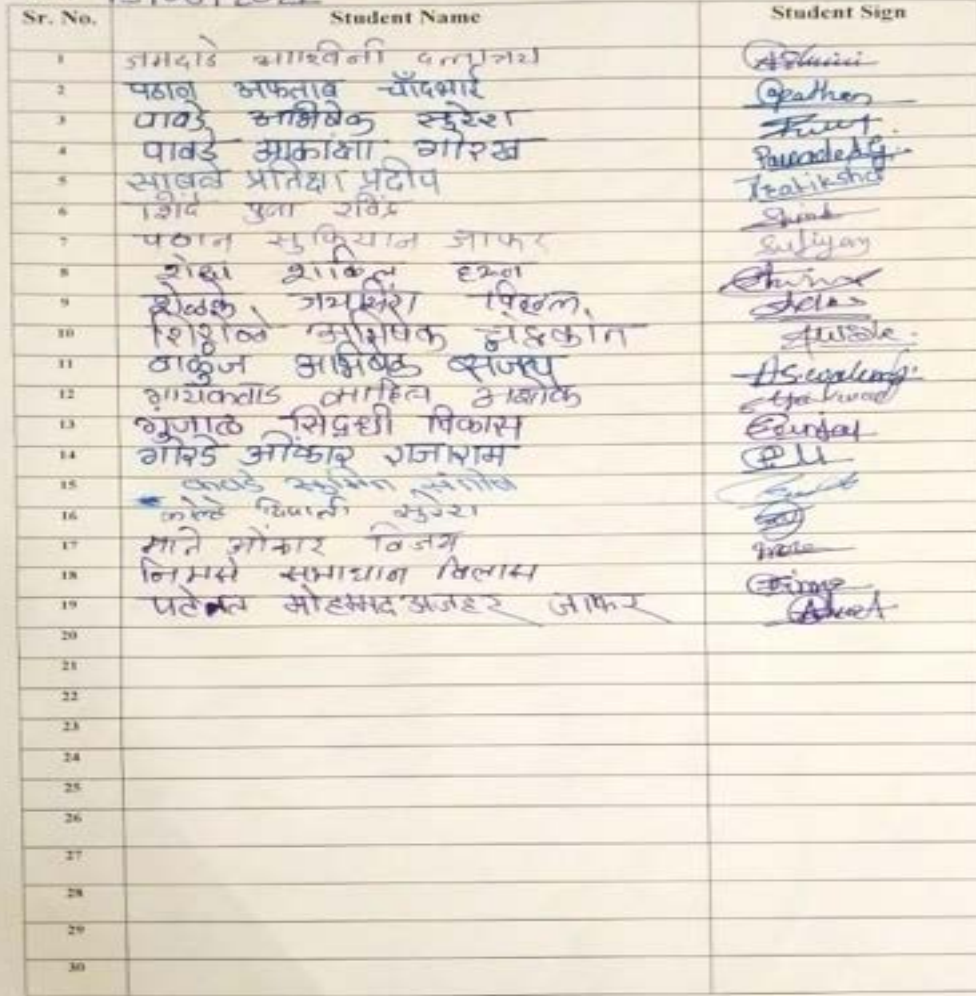 Sr. No. Student Name Student Sign
1 जमदाडे आश्विनी दत्तात्रय Ashwini
2 पठान अफताब चाँदभाई Apathan
3 पावडे अभिषेक सुरेश
4 पावडे आकांक्षा गोरख Pawade A.G.
5 साबळे प्रतिक्षा प्रदीप Pratiksha
6 शिंदे पुजा रविंद्र
7 पठान सुफियान जाफर Sufiyan
8 शेख शाकिल
9 शेळके जयसिंग विठ्ठल
10 अभिषेक चंद्रकांत
11 वाळुंज अभिषेक संजय
12 गायकवाड साहिल अशोक Gaikwad
13 गुंजाळ सिद्धी विकास Gunjal
14 गोरडे ओंकार राजाराम
15 कवडे सुमित संतोष
16 कोल्हे दिपाली सुरेश
17 माने ओंकार विजय mane
18 निमसे समाधान विलास
19 मोहम्मद अजहर जाफर
20
21
22
23
24
25
26
27
28
29
30